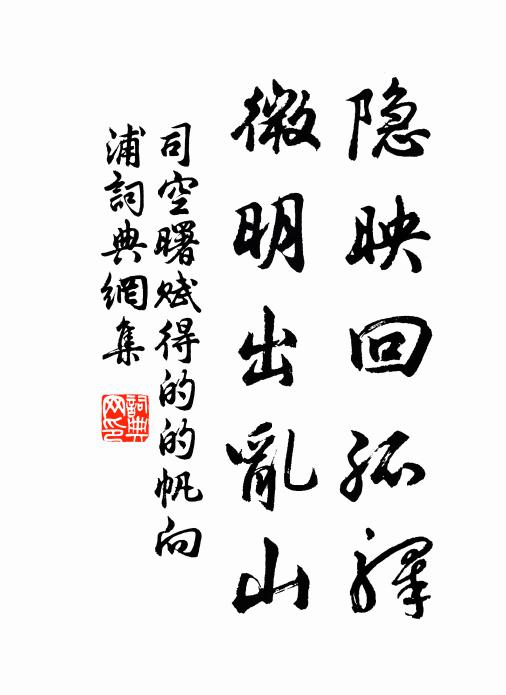 隐映回孤驛
微明出亂山
司空曙赋得的的帆向
浦詞典網集
詞典网印